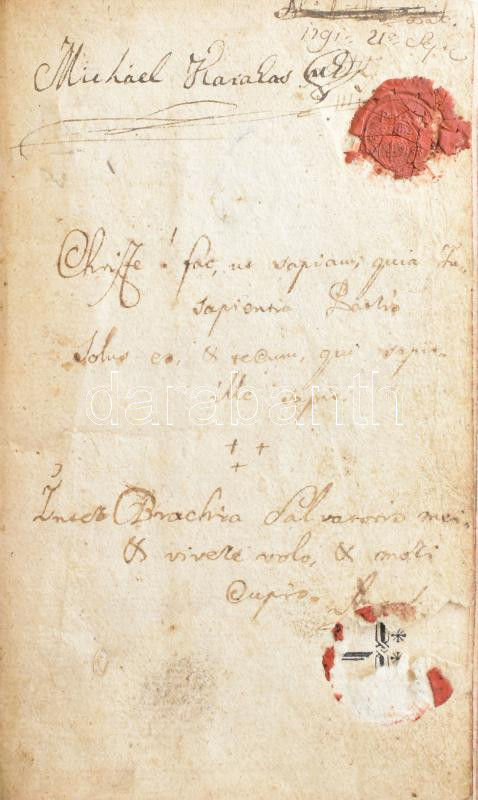 1791. 21
Michael Karakas
Christe! fac, ut sapiam, quia Tu
sapientia Patris
solus es, & tecum, qui sapit
ille sapit.
Inter Brachia Salvatoris mei
& vivere volo, & mori
cupio.
darabanth